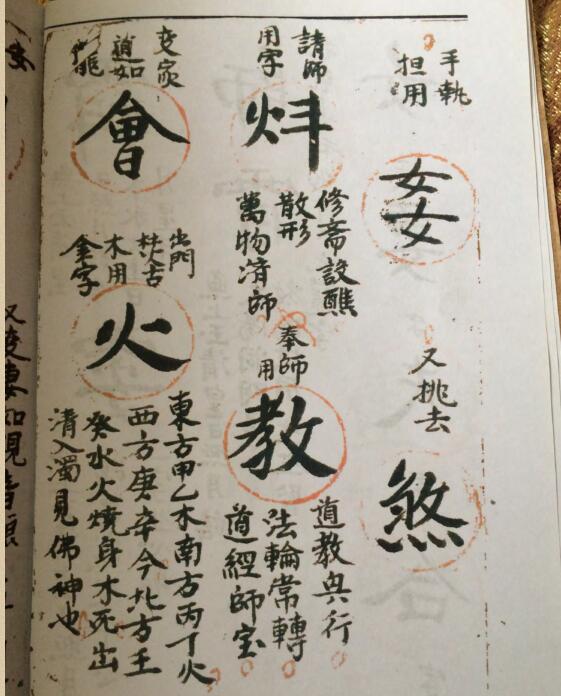 手執
担用
又挑去
煞
請師
用字
修斋設醮
散形
萬物清師
奉師
用
教
道教興行
法輪常轉
道經師宝
道如
會
出門
木用
金字
火
東方甲乙木南方丙丁火
西方庚辛今北方王
癸水火燒身水死出
清入濁見佛神也